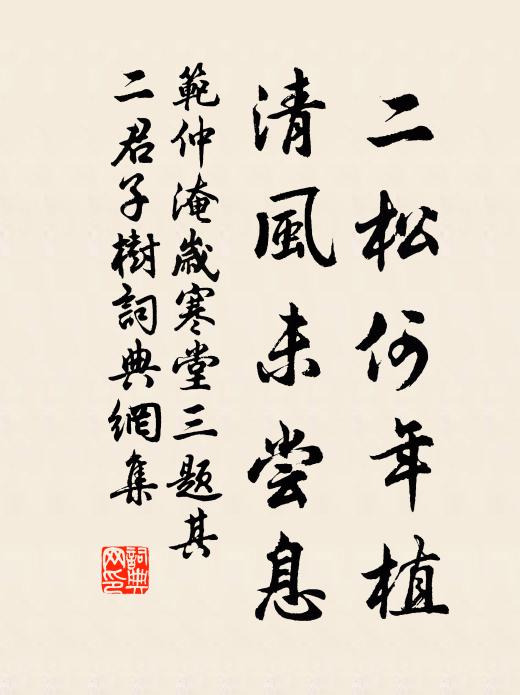 二松何年植
清風未尝息
範仲淹歲寒堂三题其
二君子樹詞典網集
詞典
网印